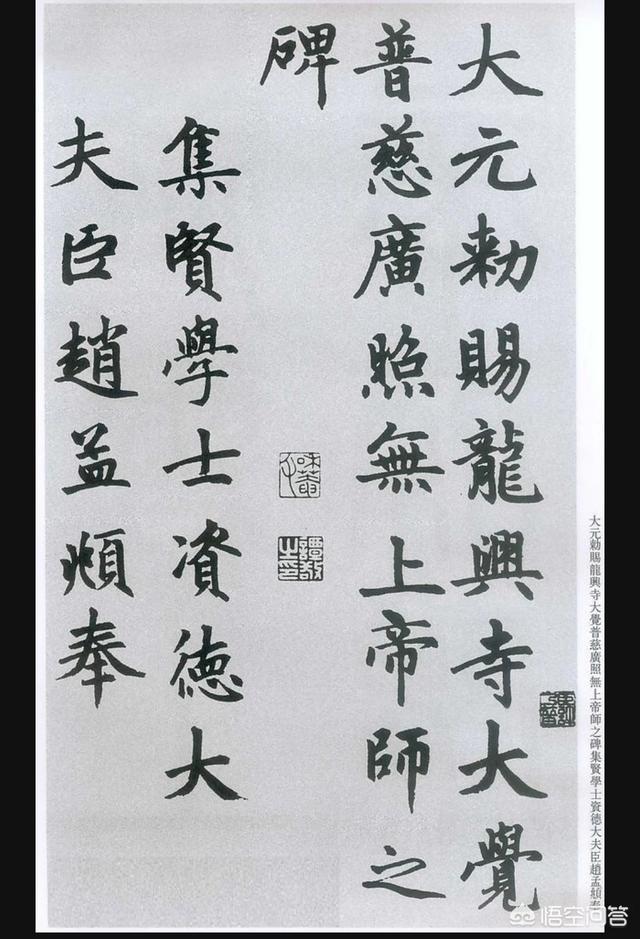 大元勅賜龍興寺大覺
普慈廣照無上帝師之
碑
集賢學士資德大
夫臣趙孟頫奉
大元勅賜龍興寺大覺普慈廣照無上帝師之碑集賢學士資德大夫臣趙孟頫奉
悟空问答